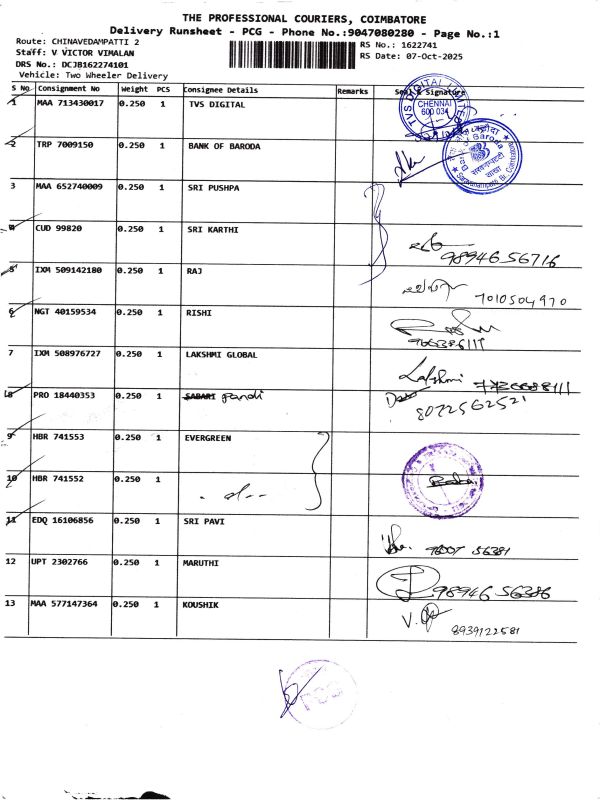 THE PROFESSIONAL COURIERS, COIMBATORE
Delivery Runsheet - PCG - Phone No.:9047080280 - Page No.:1
Route: CHINAVEDAMPATTI 2
Staff: V VICTOR VIMALAN
DRS No.: DCJB162274101
Vehicle: Two Wheeler Delivery
RS No.: 1622741
RS Date: 07-Oct-2025
S No Consignment No Weight PCS Consignee Details Remarks Seal & Signature
1 MAA 713430017 0.250 1 TVS DIGITAL
TVS DIGITAL LIMITED
CHENNAI
600 034
2 TRP 7009150 0.250 1 BANK OF BARODA
Bank of Baroda
3 MAA 652740009 0.250 1 SRI PUSHPA
4 CUD 99820 0.250 1 SRI KARTHI
98946 56716
5 IXM 509142180 0.250 1 RAJ
7010504970
6 NGT 40159534 0.250 1 RISHI
7 IXM 508976727 0.250 1 LAKSHMI GLOBAL
Lakshmi
8 PRO 18440353 0.250 1 SABARI Pandi
8072562521
9 HBR 741553 0.250 1 EVERGREEN
10 HBR 741552 0.250 1
11 EDQ 16106856 0.250 1 SRI PAVI
12 UPT 2302766 0.250 1 MARUTHI
98946 56386
13 MAA 577147364 0.250 1 KOUSHIK
8939122581